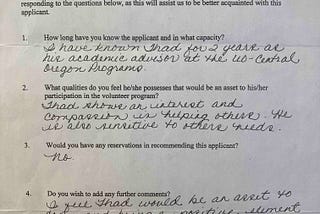 responding to the questions below, as this will assist us to be better acquainted with this
applicant.
1. How long have you know the applicant and in what capacity?
I have known Thad for 2 years as
his academic advisor at the UO-Central
Oregon Programs.
2. What qualities do you feel he/she possesses that would be an asset to his/her
participation in the volunteer program?
Thad shows an interest and
compassion in helping others. He
is also sensitive to others needs.
3. Would you have any reservations in recommending this applicant?
No.
4. Do you wish to add any further comments?
I feel Thad would be an asset to
positive element